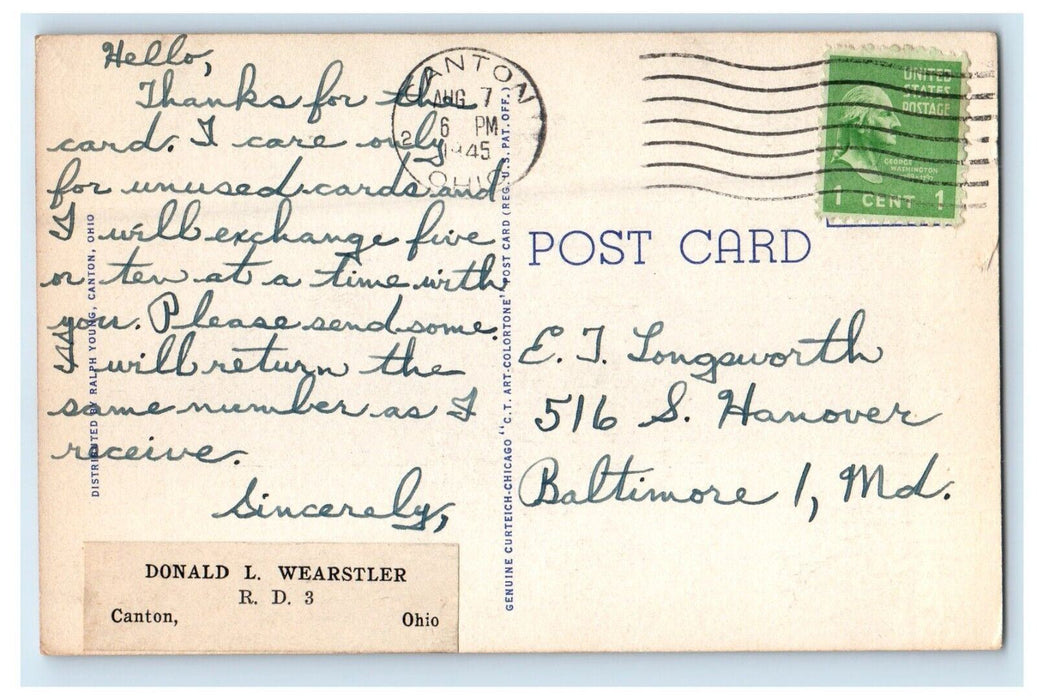 Hello,
Thanks for the
card. I care only
for unused cards and
I will exchange five
or ten at a time with
you. Please send some.
I will return the
same number as I
receive.
Sincerely,
DONALD L. WEARSTLER
R. D. 3
Canton, Ohio
DISTRIBUTED BY RALPH YOUNG, CANTON, OHIO
CANTON
AUG 7
6 PM
1945
OHIO
2
GENUINE CURTEICH-CHICAGO "C.T. ART-COLORTONE" POST CARD (REG. U.S. PAT. OFF.)
UNITED
STATES
POSTAGE
GEORGE
WASHINGTON
1 CENT 1
POST CARD
E. T. Longsworth
516 S. Hanover
Baltimore 1, Md.